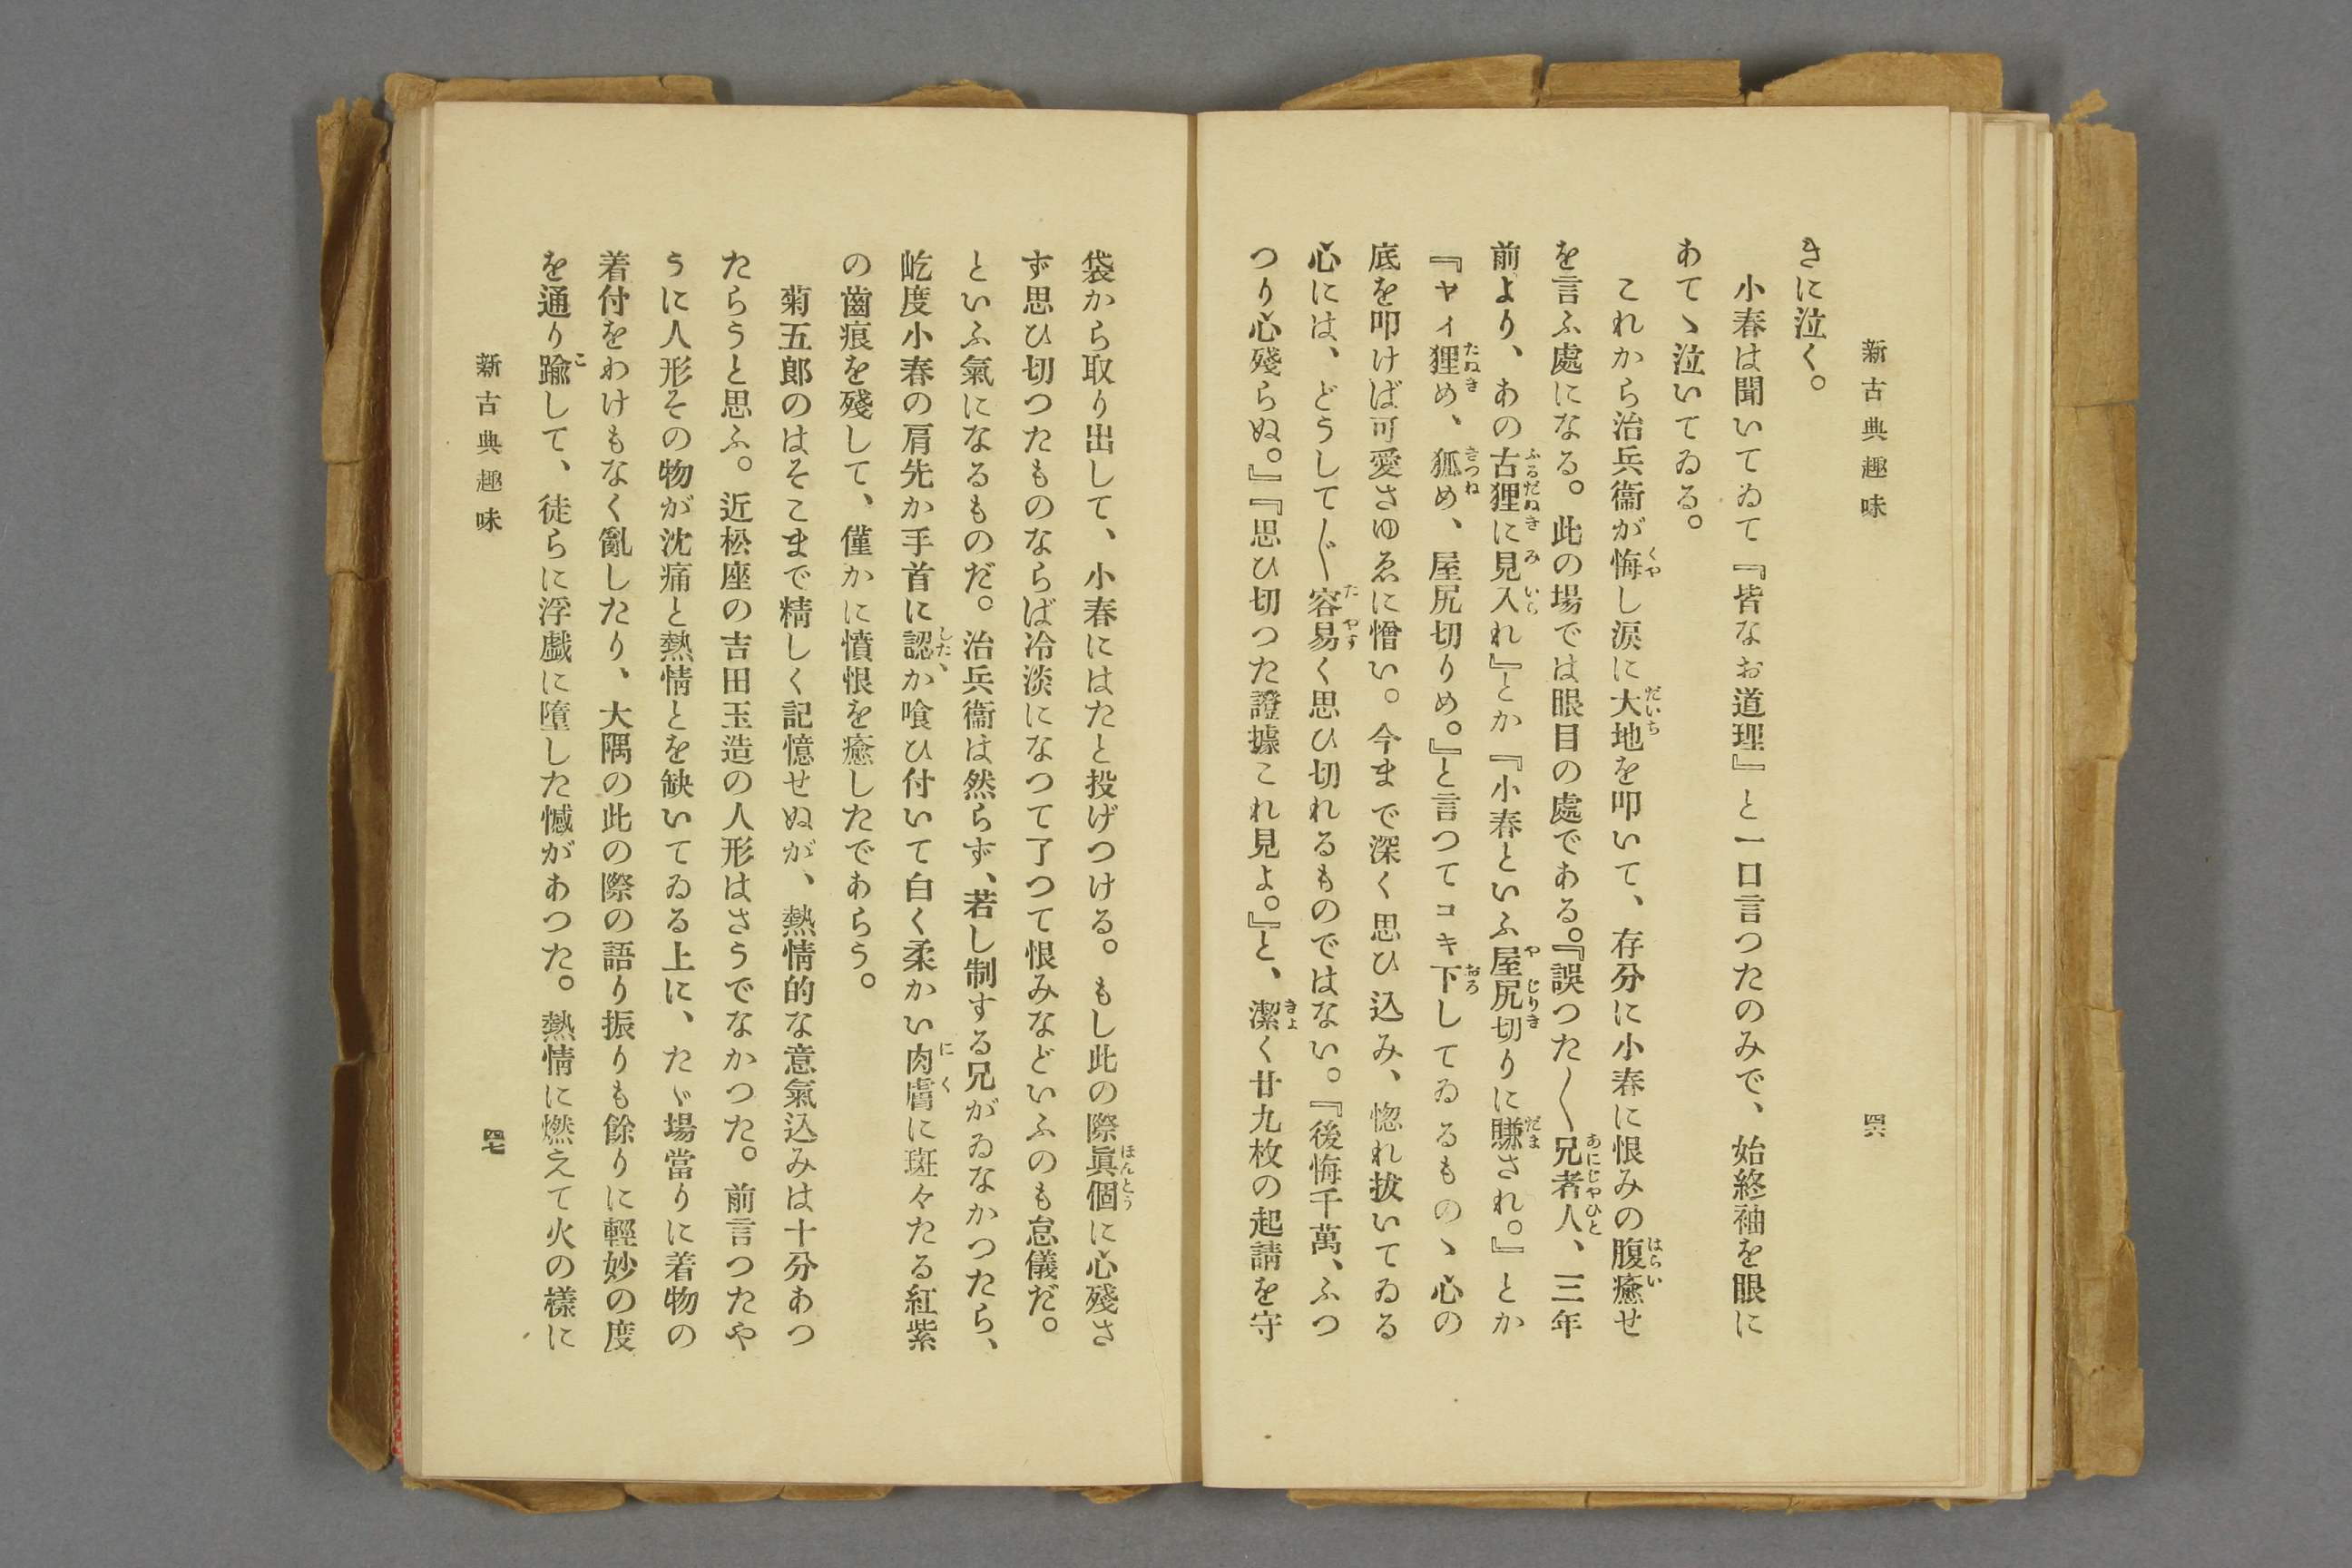 新古典趣味
四六
きに泣く。
小春は聞いてゐて『皆なお道理』と一口言つたのみで、始終袖を眼に
あてゝ泣いてゐる。
これから治兵衞が悔し涙に大地を叩いて、存分に小春に恨みの腹癒せ
を言ふ處になる。此の場では眼目の處である。『誤つた〱兄者人、三年
前より、あの古狸に見入れ』とか『小春といふ屋尻切りに賺され。』とか
『ヤイ狸め、狐め、屋尻切りめ。』と言つてコキ下してゐるものゝ心の
底を叩けば可愛さゆゑに憎い。今まで深く思ひ込み、惚れ拔いてゐる
心には、どうして〲容易く思ひ切れるものではない。『後悔千萬、ふつ
つり心殘らぬ。』『思ひ切つた證據これ見よ。』と、潔く廿九枚の起請を守
袋から取り出して、小春にはたと投げつける。もし此の際眞個に心殘さ
ず思ひ切つたものならば冷淡になつて了つて恨みなどいふのも怠儀だ。
といふ氣になるものだ。治兵衞は然らず、若し制する兄がゐなかつたら、
屹度小春の肩先か手首に認か喰ひ付いて白く柔かい肉膚に斑々たる紅紫
の齒痕を殘して、僅かに憤恨を癒したであらう。
菊五郎のはそこまで精しく記憶せぬが、熱情的な意氣込みは十分あつ
たらうと思ふ。近松座の吉田玉造の人形はさうでなかつた。前言つたや
うに人形その物が沈痛と熱情とを缺いてゐる上に、たゞ場當りに着物の
着付をわけもなく亂したり、大隅の此の際の語り振りも餘りに輕妙の度
を通り踰して、徒らに浮戲に墮した憾があつた。熱情に燃えて火の樣に
新古典趣味
四七